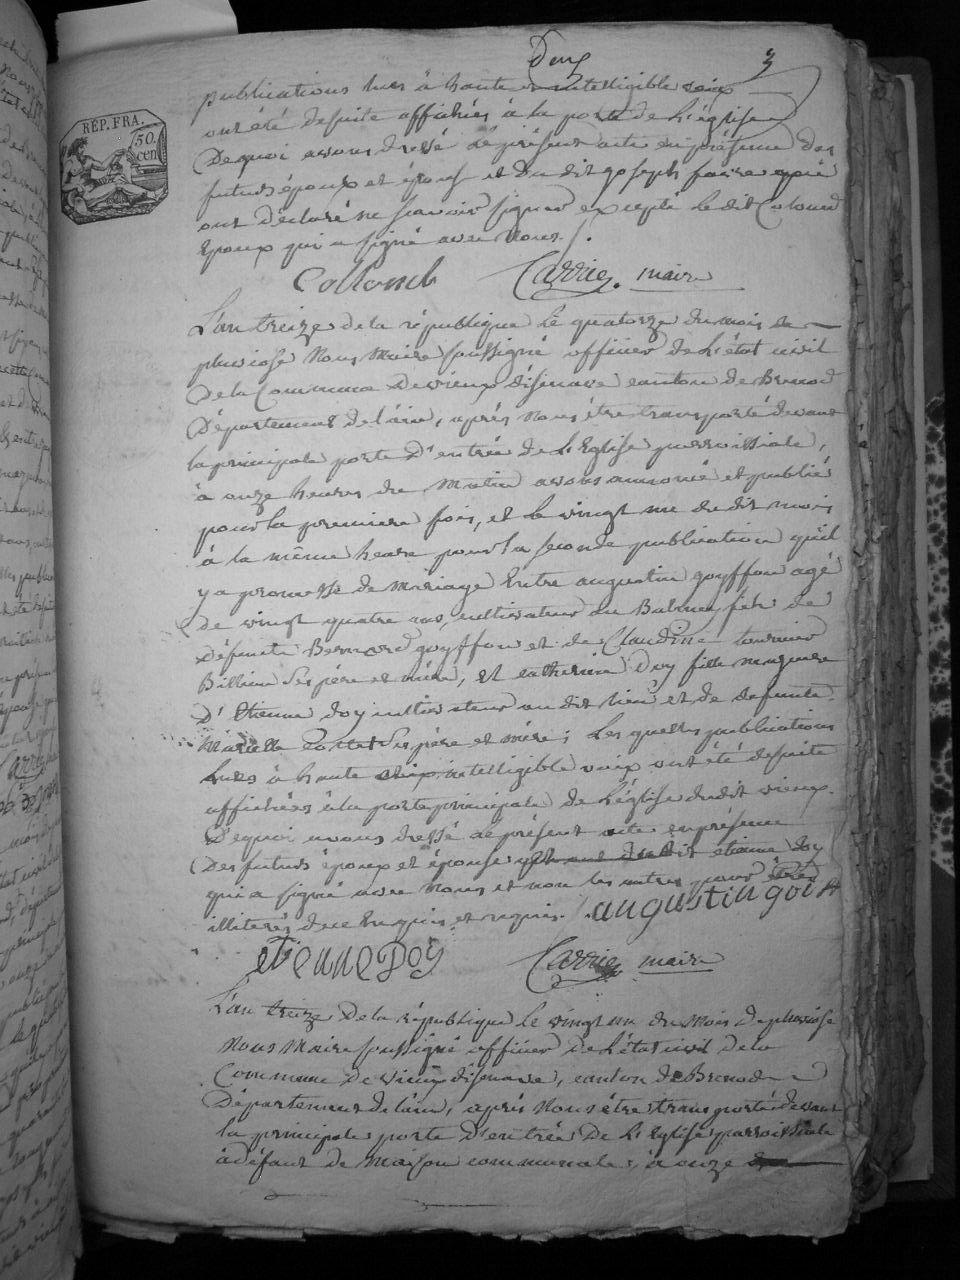 Deux 3
publications lues à haute et intelligible voix
ont été desuite affichées à la porte de L'église
De quoi avons dressé Le présent acte en présence des
futurs époux et épouse et du dit joseph faivre qui
ont déclaré ne scavoir signer excepté le dit Colomb
Epoux qui a signé avec Nous ./.
REP. FRA.
50.
cen
Collomb Carrier maire
L'an treize de la république Le quatorze du mois de
pluviose Nous Maire soussigné officier de L'état civil
De la Commune De vieux d'isenave canton de Brenod
Département de l'ain, après Nous être transporté devant
la principale porte D'entrée de L'Eglise parroissiale,
à onze heures du Matin avons annoncé et publié
pour la premiere fois, et le vingt un du dit mois
à la même heure pour la seconde publication qu'il
y a promesse de mariage Entre augustin goyffon agé
De vingt quatre ans, cultivateur au Balmey, fils de
Défunts Bernard goyffon et de Claudine tournier
Billion Ses père et mère, et catherine Doy fille majeure
D'Etienne Doy cultivateur au dit lieu et de defunte
Mariette Ses père et mère; Les quelles publications
Lues à haute voix intelligible voix ont été desuite
affichées à la porte principale de L'église dudit vieux.
De quoi avons dressé ce présent acte en présence
Des futurs époux et épouse etienne Doy
qui a signé avec Nous et non les autres pour être
illiterés de ce Enquis et requis. /. augustin goif
etienne Doy Carrier maire
L'an treize De la république Le vingt un du Mois De pluviose
Nous Maire soussigné officier De L'état civil de la
Commune De vieux d'isenave, canton de Brenod
Département de l'ain, après Nous être transporté devant
la principale porte D'entrée De L'Eglise parroissiale
à défaut de Maison communale, à onze